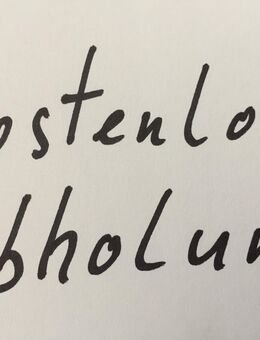 ostenlo
bholun